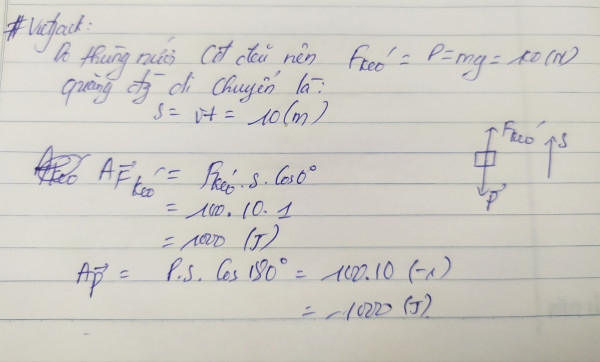 # Vietjack:
Vì thùng nước CĐ đều nên Fkéo = P = mg = 100 (N)
quãng đg di chuyển là:
s = vt = 10 (m)
A F⃗kéo = Fkéo . s . Cos0°
= 100. 10. 1
= 1000 (J)
A P⃗ = P.s. Cos 180° = 100.10 (-1)
= -1000 (J).
F⃗kéo
s
P⃗